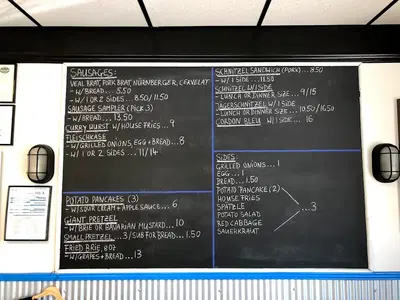 SAUSAGES:
VEAL BRAT, PORK BRAT, NÜRNBERGER, CERVELAT
- W/ BREAD... 5.50
- W/ 1 OR 2 SIDES... 8.50/11.50
SAUSAGE SAMPLER (Pick 3)
- W/BREAD... 13.50
CURRY WURST W/ HOUSE FRIES... 9
FLEISCHKASE
- W/ GRILLED ONIONS, EGG + BREAD... 8
- W/ 1 OR 2 SIDES... 11/14
POTATO PANCAKES (3)
- W/ SOUR CREAM + APPLE SAUCE... 6
GIANT PRETZEL
- W/ BRIE OR BAVARIAN MUSTARD... 10
SMALL PRETZEL... 3 / SUB FOR BREAD... 1.50
FRIED BRIE, 8 OZ
- W/GRAPES + BREAD... 13
SCHNITZEL SANDWICH (PORK)... 8.50
- W/ 1 SIDE... 11.50
SCHNITZEL W/ 1 SIDE
- LUNCH OR DINNER SIZE... 9/15
JÄGERSCHNITZEL W/ 1 SIDE
- LUNCH OR DINNER SIZE... 10.50/16.50
CORDON BLEU W/ 1 SIDE... 16
SIDES
GRILLED ONIONS... 1
EGG... 1
BREAD... 1.50
POTATO PANCAKE (2)
HOUSE FRIES
SPÄTZLE
POTATO SALAD
RED CABBAGE
SAUERKRAUT
...3